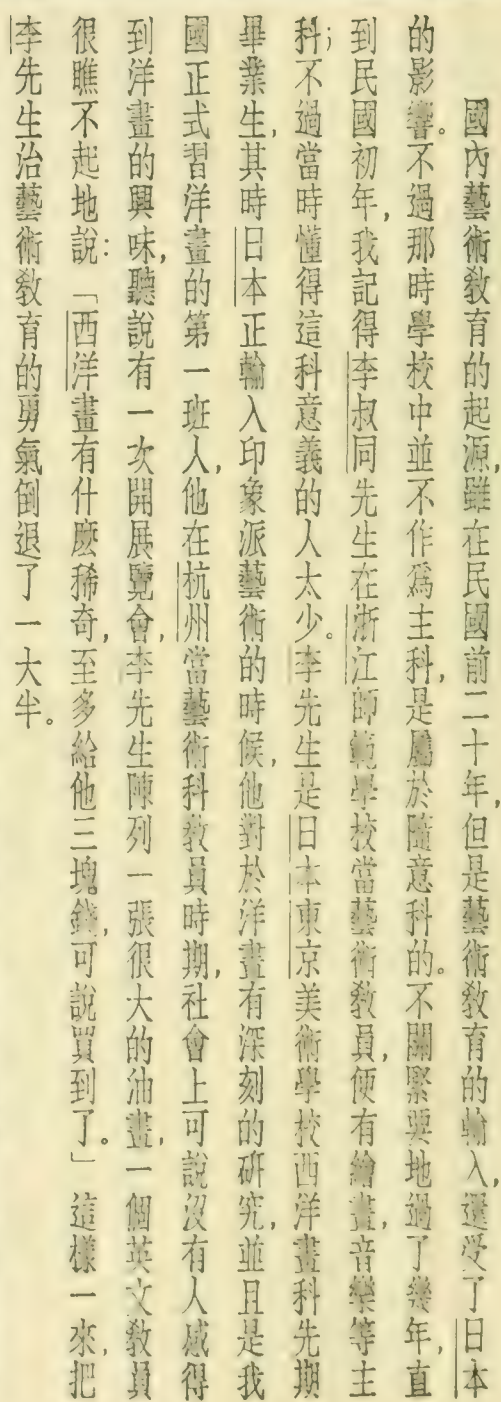 國內藝術敎育的起源，雖在民國前二十年，但是藝術敎育的輸入，還受了日本
的影響。不過那時學校中並不作爲主科，是屬於隨意科的。不關緊要地過了幾年，直
到民國初年，我記得李叔同先生在浙江師範學校當藝術敎員，便有繪畫，音樂等主
科；不過當時懂得這科意義的人太少。李先生是日本東京美術學校西洋畫科先期
畢業生，其時日本正輸入印象派藝術的時候，他對於洋畫有深刻的研究，並且是我
國正式習洋畫的第一班人，他在杭州當藝術科敎員時期，社會上可說沒有人感得
到洋畫的興味，聽說有一次開展覽會，李先生陳列一張很大的油畫，一個英文敎員
很瞧不起地說：「西洋畫有什麼稀奇，至多給他三塊錢，可說買到了。」這樣一來，把
李先生治藝術敎育的勇氣倒退了一大半。